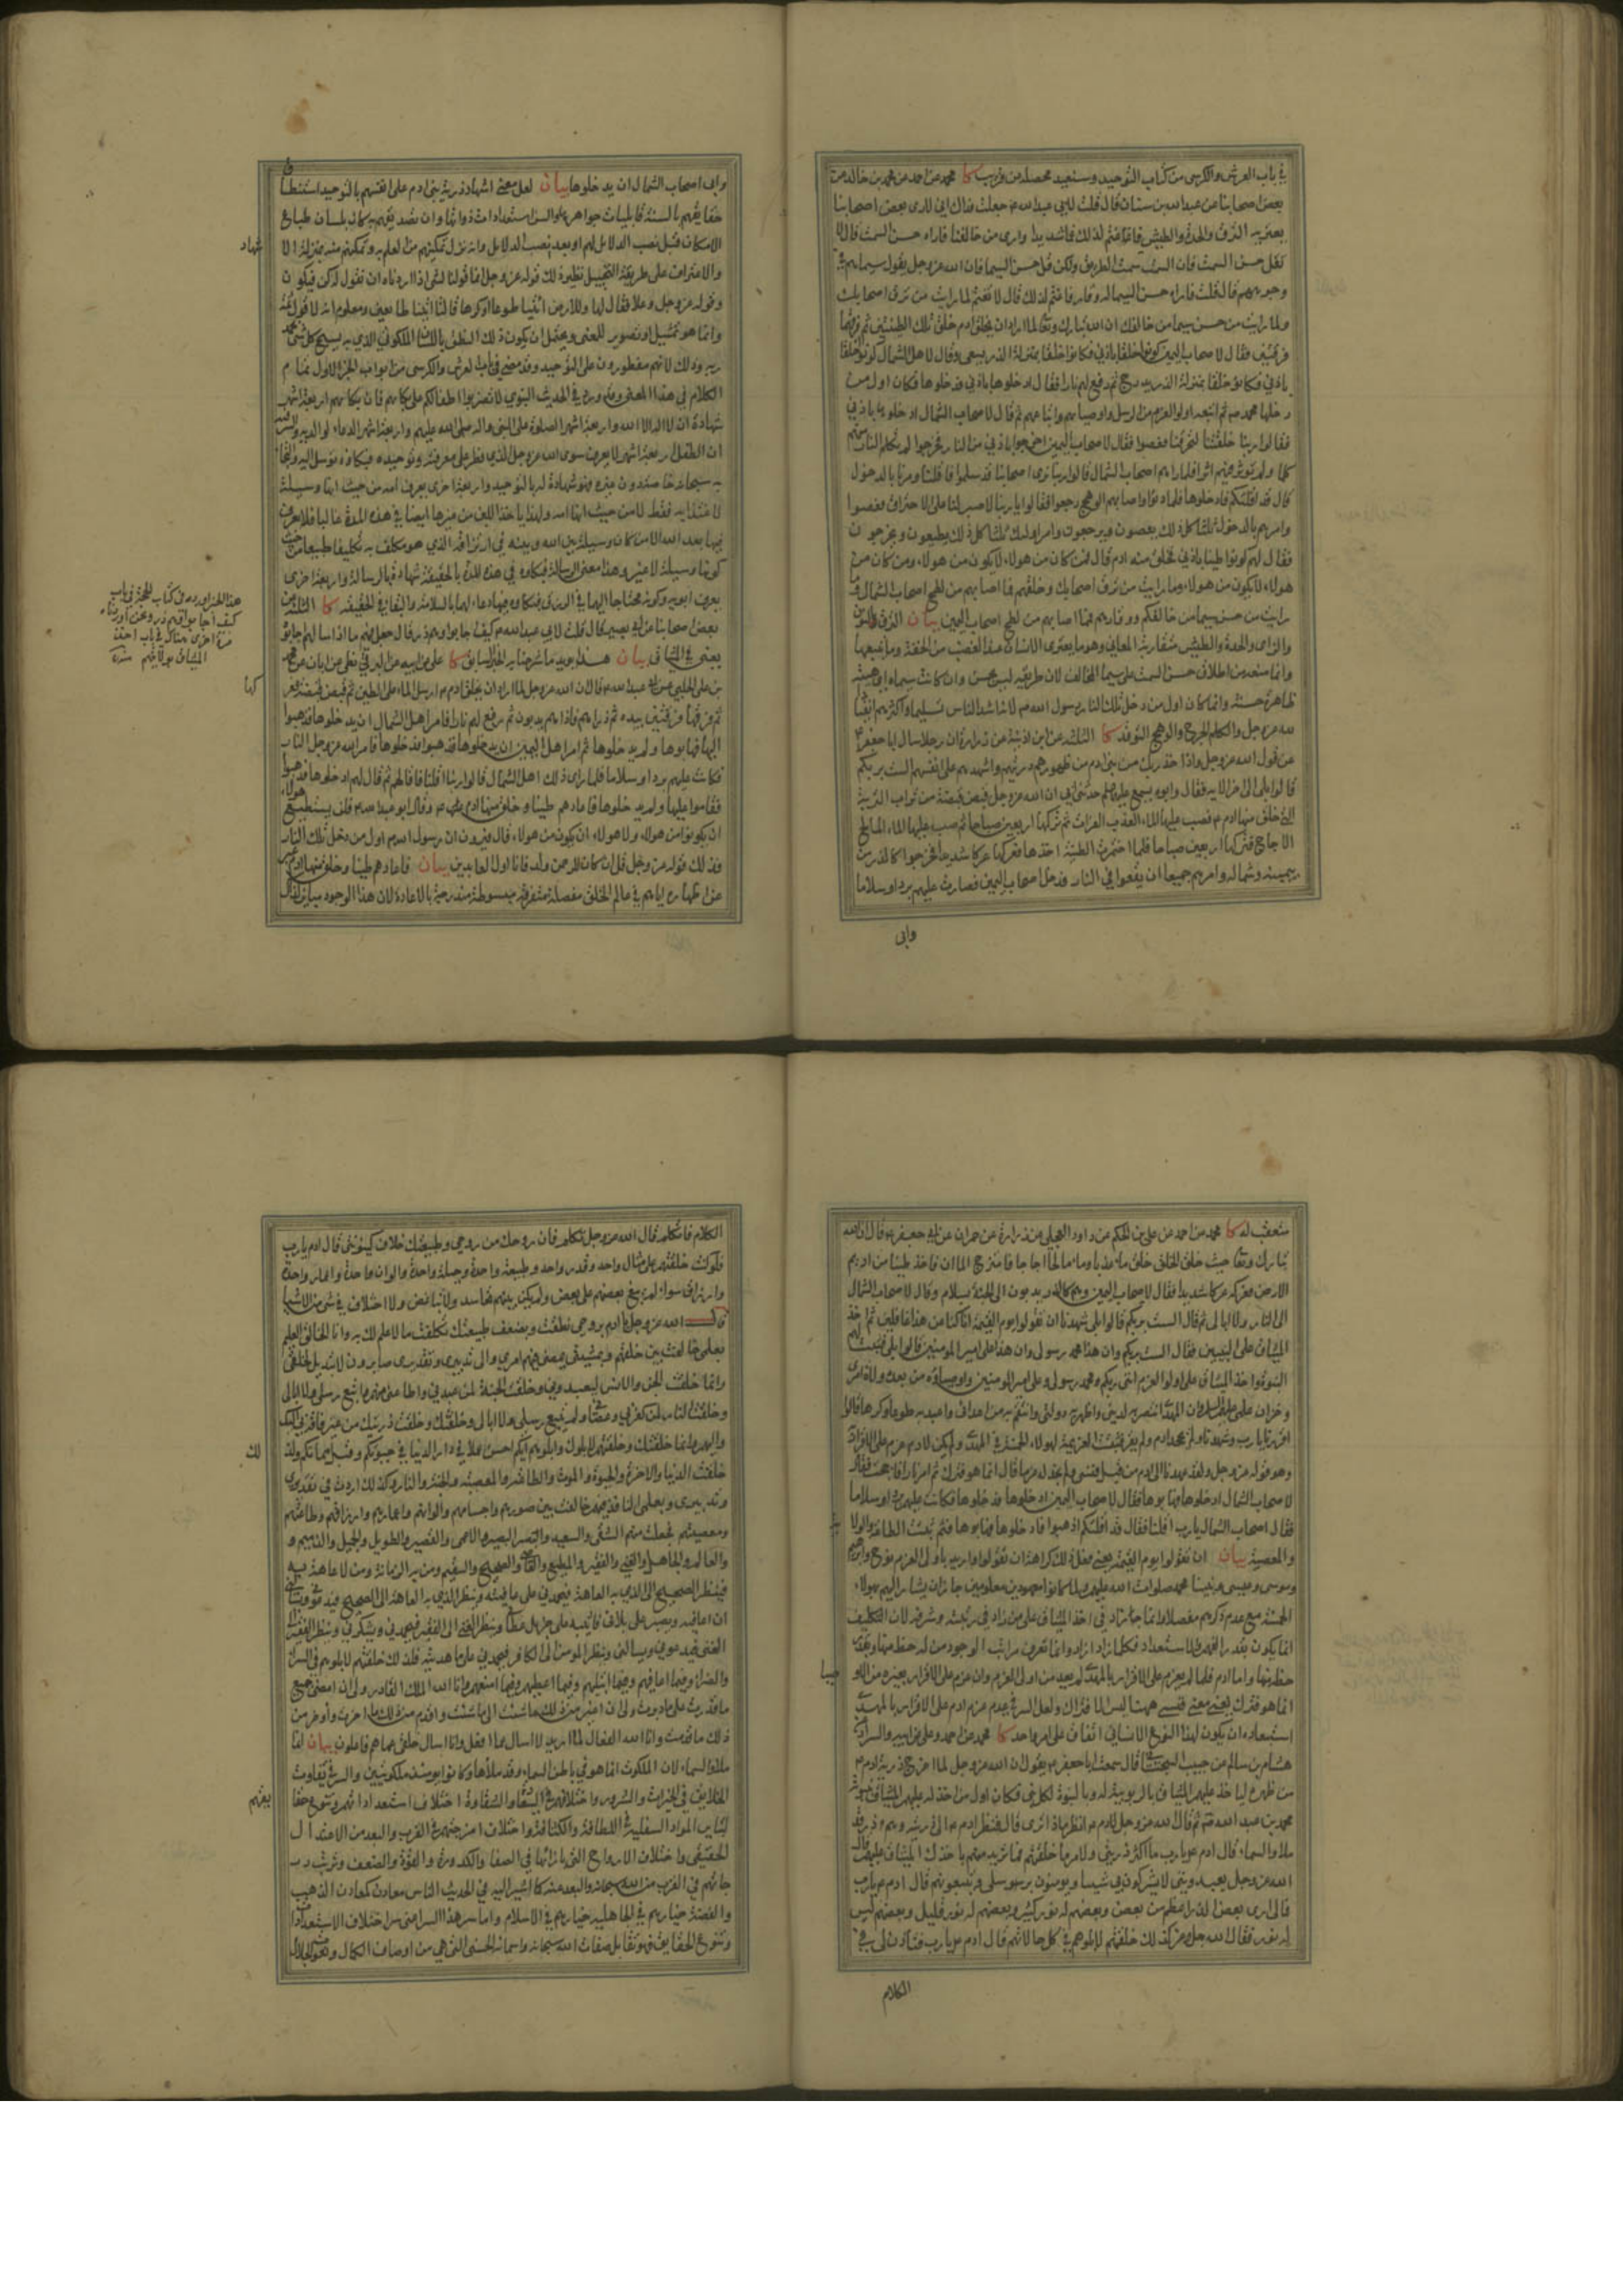 في باب العرش والكرسي من كتاب التوحيد وسنعيد محصله من قريب كا محمد عن احمد عن محمد بن خالد عن
بعض اصحابنا عن عبد الله بن سنان قال قلت لابي عبد الله ع جعلت فداك اني لارى بعض اصحابنا
يعتريه النزق والحدة والطيش فاغتم لذلك غما شديدا وارى من خالفنا فاراه حسن السمت قال لا
تقل حسن السمت فان السمت سمت الطريق ولكن قل حسن السيما فان الله عز وجل يقول سيماهم في
وجوههم قال قلت فاراه حسن السيما له وقار فاغتم لذلك قال لا تغتم لما رايت من نزق اصحابك
ولما رايت من حسن سيما من خالفك ان الله تبارك وتعالى لما اراد ان يخلق ادم خلق تلك الطينتين ثم فرقهما
فرقتين فقال لاصحاب اليمين كونوا خلقا باذني فكانوا خلقا بمنزلة الذر يسعى وقال لاهل الشمال كونوا خلقا
باذني فكانوا خلقا بمنزلة الذر يدرج ثم رفع لهم نارا فقال ادخلوها باذني فدخلوها فكان اول من
دخلها محمد ص ثم اتبعه اولوا العزم من الرسل واوصياهم واتباعهم ثم قال لاصحاب الشمال ادخلوها باذني
فقالوا ربنا خلقتنا لتحرقنا فعصوا فقال لاصحاب اليمين اخرجوا باذني من النار فخرجوا لم تكلم النار منهم
كلما ولم تؤثر فيهم اثرا فلما راهم اصحاب الشمال قالوا ربنا نرى اصحابنا قد سلموا فاقلنا ومرنا بالدخول
قال قد اقلتكم فادخلوها فلما دنوا واصابهم الوهج رجعوا فقالوا يا ربنا لا صبر لنا على الاحتراق فعصوا
وامرهم بالدخول ثلثا كل ذلك يعصون ويرجعون وامر اولئك ثلثا كل ذلك يطيعون ويخرجون
فقال لهم كونوا طينا باذني فخلق منه ادم قال فمن كان من هولاء لا يكون من هولاء ومن كان من
هولاء لا يكون من هولاء وما رايت من نزق اصحابك وخلقهم فما اصابهم من لطخ اصحاب الشمال وما
رايت من حسن سيما من خالفكم ووقارهم فما اصابهم من لطخ اصحاب اليمين بيان النزق
والحدة والطيش متقاربة المعاني وهو ما يعتري الانسان عند الغضب من الخفة
وانما منعه من اطلاق حسن السمت على سيما المخالف لان طريقه ليس بحسن وان كانت سيماه
ظاهرة حسنة وانما كان اول من دخل تلك النار رسول الله ص لانه اشد الناس تسليما واكثرهم
لله عز وجل والكلم الجرح والوهج التوقد كا الثلثة عن ابن اذينة عن زرارة ان رجلا سال ابا جعفر ع
عن قول الله عز وجل واذ اخذ ربك من بني ادم من ظهورهم ذريتهم واشهدهم على انفسهم الست بربكم
قالوا بلى الى اخر الاية فقال وابوه يسمع ع حدثني ابي ان الله عز وجل قبض قبضة من تراب التربة
التي خلق منها ادم ع فصب عليها الماء العذب الفرات ثم تركها اربعين صباحا ثم صب عليها الماء المالح
الاجاج فتركها اربعين صباحا فلما اختمرت الطينة اخذها فعركها عركا شديدا فخرجوا كالذر من
يمينه وشماله وامرهم جميعا ان يقعوا في النار فدخل اصحاب اليمين فصارت عليهم بردا وسلاما
وابى
وابى اصحاب الشمال ان يدخلوها بيان لعل معنى اشهاد ذرية بني ادم على انفسهم بالتوحيد استنطاق
حقايقهم بالسنة قابليات جواهرهم والسن استعدادات ذواتها وان تصديقهم به كان بلسان طباع
الامكان قبل نصب الدلائل لهم او بعد نصب الدلايل وانه نزل تمكينهم من العلم به وتمكنهم منه بمنزلة الا
شهاد
والاعتراف على طريقة التخييل نظير ذلك قوله عز وجل انما قولنا لشئ اذا اردناه ان نقول له كن فيكون
وقوله عز وجل وعلا فقال لها وللارض ائتيا طوعا او كرها قالتا اتينا طائعين ومعلوم انه لا قول ثمة
وانما هو تمثيل وتصوير للمعنى ويحتمل ان يكون ذلك النطق باللسان الملكوتي الذي به يسبح كل شئ بحمد
ربه وذلك لانهم مفطورون على التوحيد وقد مضى في باب العرش والكرسي من ابواب الجزء الاول تمام
الكلام في هذا المعنى وقد ورد في الحديث النبوي لا تضربوا اطفالكم على بكائهم فان بكاءهم اربعة اشهر
شهادة ان لا اله الا الله واربعة اشهر الصلوة على النبي واله صلى الله عليهم واربعة اشهر الدعاء لوالديه
ان الطفل اربعة اشهر لا يعرف سوى الله عز وجل الذي فطر على معرفته وتوحيده فبكاؤه توسل اليه والتجاء
به سبحانه خاصة دون غيره فهو شهادة له بالتوحيد واربعة اخرى يعرف امه من حيث انها وسيلة
لاغتذائه فقط لا من حيث انها امه ولهذا ياخذ اللبن من غيرها ايضا في هذه المدة غالبا فلا يعرف
فيها بعد الله الا من كان وسيلة بين الله وبينه في ارتزاقه الذي هو مكلف به تكليفا طبيعيا من حيث
كونها وسيلة لا غير وهذا معنى الرسالة فبكاؤه في هذه المدة بالحقيقة شهادة بالرسالة واربعة اخرى
يعرف ابويه وكونه محتاجا اليهما في الرزق فبكاؤه فيها دعاء لهما بالسلامة والبقاء في الحقيقة كا الثلثة عن
بعض اصحابنا عن ابي بصير قال قلت لابي عبد الله ع كيف اجابوا وهم ذر قال جعل فيهم ما اذا سالهم اجابوه
يعني في الميثاق بيان هذا يؤيد ما شرحنا به الخبر السابق كا علي عن ابيه عن البزنطي عن ابان عن محمد
بن علي الحلبي عن ابي عبد الله ع قال ان الله عز وجل لما اراد ان يخلق ادم ع ارسل الماء على الطين ثم قبض قبضة فعر
كها
ثم فرقها فرقتين بيده ثم ذراهم فاذا هم يدبون ثم رفع لهم نارا فامر اهل الشمال ان يدخلوها فذهبوا
اليها فهابوها ولم يدخلوها ثم امر اهل اليمين ان يدخلوها فذهبوا فدخلوها فامر الله عز وجل النار
فكانت عليهم بردا وسلاما فلما راى ذلك اهل الشمال قالوا ربنا اقلنا فاقالهم ثم قال لهم ادخلوها فذهبوا
فقاموا عليها ولم يدخلوها فاعادهم طينا وخلق منها ادم ع وقال ابو عبد الله ع فلن يستطيع هولاء
ان يكونوا من هولاء ولا هولاء ان يكون من هولاء قال فيرون ان رسول الله ص اول من دخل تلك النار
فذلك قوله عز وجل قل ان كان للرحمن ولد فانا اول العابدين بيان فاعادهم طينا وخلق منها ادم
عن اظهاره اياهم في عالم الخلق مفصلة متفرقة مبسوطة متدرجة بالاعادة لان هذا الوجود مباين لذاك
هذا الخبر اورده في كتاب الحجة في باب
كيف اجابوا وهم ذر ونحن اوردناه
مرة اخرى هناك في باب اخذ
الميثاق بولايتهم منه
متعقب له كا محمد عن احمد عن علي بن الحكم عن داود العجلي عن زرارة عن حمران عن ابي جعفر ع قال ان الله
تبارك وتعالى حيث خلق الخلق خلق ماء عذبا وماء مالحا اجاجا فامتزج الماان فاخذ طينا من اديم
الارض فعركه عركا شديدا فقال لاصحاب اليمين وهم كالذر يدبون الى الجنة بسلام وقال لاصحاب الشمال
الى النار ولا ابالي ثم قال الست بربكم قالوا بلى شهدنا ان تقولوا يوم القيمة انا كنا عن هذا غافلين ثم اخذ
الميثاق على النبيين فقال الست بربكم وان هذا محمد رسولي وان هذا علي امير المومنين قالوا بلى فثبتت لهم
النبوة واخذ الميثاق على اولوا العزم انني ربكم ومحمد رسولي وعلي امير المومنين واوصياؤه من بعده ولاة امري
وخزان علمي وان المهدي انتصر به لديني واظهر به دولتي وانتقم به من اعدائي واعبد به طوعا وكرها قالوا
اقررنا يا رب وشهدنا ولم يجحد ادم ولم يقر فثبتت العزيمة لهولاء الخمسة في المهدي ولم يكن لادم عزم على الاقرار به
وهو قوله عز وجل ولقد عهدنا الى ادم من قبل فنسي ولم نجد له عزما قال انما هو فترك ثم امر نارا فاججت فقال
لاصحاب الشمال ادخلوها فهابوها فقال لاصحاب اليمين ادخلوها فدخلوها فكانت عليهم بردا وسلاما
فقال اصحاب الشمال يا رب اقلنا فقال قد اقلتكم اذهبوا فادخلوها فهابوها فثم ثبتت الطاعة والولاية
والمعصية بيان ان تقولوا يوم القيمة يعني فعل ذلك كراهة ان تقولوا واريد باولى العزم نوح وابرهيم
وموسى وعيسى ونبينا محمد صلوات الله عليهم ولما كانوا معهودين معلومين جاز ان يشار اليهم بهولاء
الخمسة مع عدم ذكرهم مفصلا وانما جاز زاد في اخذ الميثاق على من زاد في رتبته وشرفه لان التكليف
انما يكون بقدر الفهم والاستعداد فكلما زاد ازداد وانما تعرف مراتب الوجود من له حظ منها وبقدر
حظه منها واما ادم فلما لم يعزم على الاقرار بالمهدي لم يعد من اولي العزم وان عزم على الاقرار بغيره من الاو
صيا
انما هو فترك يعني معنى فنسى ههنا ليس الا فترك ولعل السر في عدم عزم ادم على الاقرار بالمهدي
استبعاده ان يكون لهذا النوع الانساني اتفاق على امر واحد كا محمد عن احمد وعلي عن ابيه والسراد عن
هشام بن سالم عن حبيب السجستاني قال سمعت ابا جعفر ع يقول ان الله عز وجل لما اخرج ذرية ادم ع
من ظهره لياخذ عليهم الميثاق بالربوبية له وبالنبوة لكل نبي فكان اول من اخذ له عليهم الميثاق بنبوته
محمد بن عبد الله ص ثم قال الله عز وجل لادم ع انظر ماذا ترى قال فنظر ادم ع الى ذريته وهم ذر قد
ملاوا السماء قال ادم ع يا رب ما اكثر ذريتي ولامر ما خلقتهم فما تريد منهم باخذك الميثاق عليهم قال
الله عز وجل يعبدونني لا يشركون بي شيئا ويومنون برسلي ويتبعونهم قال ادم ع يا رب
فمالي ارى بعض الذر اعظم من بعض وبعضهم له نور كثير وبعضهم له نور قليل وبعضهم ليس
له نور فقال الله عز وجل كذلك خلقتهم لابلوهم في كل حالاتهم قال ادم ع يا رب فتاذن لي في
الكلام
الكلام فاتكلم قال الله عز وجل تكلم فان روحك من روحي وطبيعتك خلاف كينونتي قال ادم يا رب
فلو كنت خلقتهم على مثال واحد وقدر واحد وطبيعة واحدة وجبلة واحدة والوان واحدة واعمار واحدة
وارزاق سواء لم يبغ بعضهم على بعض ولم يكن بينهم تحاسد ولا تباغض ولا اختلاف في شئ من الاشياء
قال الله عز وجل يا ادم بروحي نطقت وبضعف طبيعتك تكلفت ما لا علم لك به وانا الخالق العليم
بعلمي خالفت بين خلقهم وبمشيتي يمضي فيهم امري والى تدبيري وتقديري صايرون لا تبديل لخلقي
وانما خلقت الجن والانس ليعبدوني وخلقت الجنة لمن عبدني واطاعني منهم واتبع رسلي ولا ابالي
وخلقت النار لمن كفر بي وعصاني ولم يتبع رسلي ولا ابالي وخلقتك وخلقت ذريتك من غير فاقة بي اليك
واليهم وانما خلقتك وخلقتهم لابلوك وابلوهم ايكم احسن عملا في دار الدنيا في حيوتكم وقبل مماتكم ولذ
لك
خلقت الدنيا والاخرة والحيوة والموت والطاعة والمعصية والجنة والنار وكذلك اردت في تقديري
وتدبيري وبعلمي النافذ فيهم خالفت بين صورهم واجسامهم والوانهم واعمارهم وارزاقهم وطاعتهم
ومعصيتهم فجعلت منهم الشقي والسعيد والبصير والاعمى والقصير والطويل والجميل والذميم و
والعالم والجاهل والغني والفقير والمطيع والعاصي والصحيح والسقيم ومن به الزمانة ومن لا عاهة به
فينظر الصحيح الى الذي به العاهة فيحمدني على عافيته وينظر الذي به العاهة الى الصحيح فيدعوني ويسالني
ان اعافيه ويصبر على بلائي فاثيبه على جزيل عطائي وينظر الغني الى الفقير فيحمدني ويشكرني وينظر الفقير الى
الغني فيدعوني ويسالني وينظر المومن الى الكافر فيحمدني على ما هديته فلذلك خلقتهم لابلوهم في السراء
والضراء وفيما اعافيهم وفيما ابتليهم وفيما اعطيهم وفيما امنعهم وانا الله الملك القادر ولي ان امضي جميع
ما قدرت على ما دبرت ولي ان اغير من ذلك ما شئت الى ما شئت واقدم من ذلك ما اخرت واؤخر من
ذلك ما قدمت وانا الله الفعال لما اريد لا اسال عما افعل وانا اسال خلقي عما هم فاعلون بيان انما
ملاوا السماء لان الملكوت انما هو في باطن السماء وقد ملاوها وكانوا يومئذ ملكوتيين والسر في تفاوت
الخلايق في الخيرات والشرور واختلافهم في السعادة والشقاوة اختلاف استعداداتهم وتنوع حقا
يقهم
لتباين المواد السفلية في اللطافة والكثافة واختلاف امزجتهم في القرب والبعد من الاعتدال
الحقيقي واختلاف الارواح التي بازائها في الصفا والكدورة والقوة والضعف وترتب در
جاتهم في القرب من الله سبحانه والبعد عنه كما اشير اليه في الحديث الناس معادن كمعادن الذهب
والفضة خيارهم في الجاهلية خيارهم في الاسلام واما سر هذا السر اعني سر اختلاف الاستعدادات
وتنوع الحقايق فهو تقابل صفات الله سبحانه واسمائه الحسنى التي هي من اوصاف الكمال ونعوت الجلال